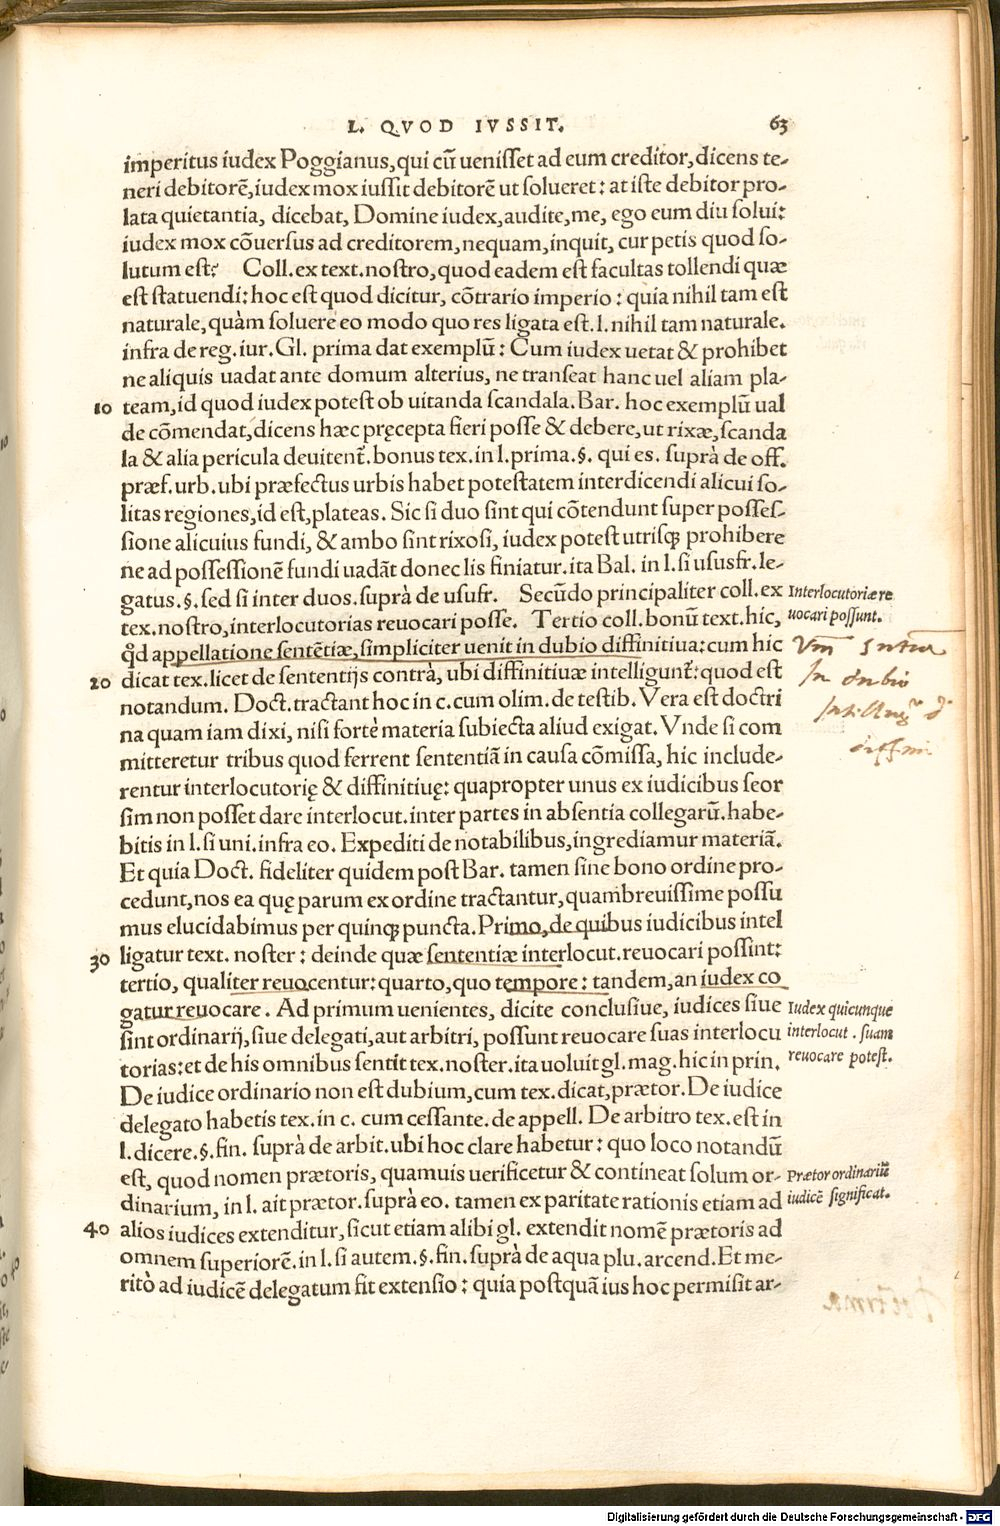 L. QVOD IVSSIT. 63
imperitus iudex Poggianus, qui cū uenisset ad eum creditor, dicens te-
neri debitorē, iudex mox iussit debitorē ut solueret: at iste debitor pro-
lata quietantia, dicebat, Domine iudex, audite, me, ego eum diu solui:
iudex mox cōuersus ad creditorem, nequam, inquit, cur petis quod so-
lutum est? Coll. ex text. nostro, quod eadem est facultas tollendi quæ
est statuendi: hoc est quod dicitur, cōtrario imperio: quia nihil tam est
naturale, quàm soluere eo modo quo res ligata est. l. nihil tam naturale.
infra de reg. iur. Gl. prima dat exemplū: Cum iudex uetat & prohibet
ne aliquis uadat ante domum alterius, ne transeat hanc uel aliam pla-
10 team, id quod iudex potest ob uitanda scandala. Bar. hoc exemplū ual
de cōmendat, dicens hæc pręcepta fieri posse & debere, ut rixæ, scanda
la & alia pericula deuitent̄. bonus tex. in l. prima. §. qui es. suprà de off.
præf. urb. ubi præfectus urbis habet potestatem interdicendi alicui so-
litas regiones, id est, plateas. Sic si duo sint qui cōtendunt super posses-
sione alicuius fundi, & ambo sint rixosi, iudex potest utrisq; prohibere
ne ad possessionē fundi uadāt donec lis finiatur. ita Bal. in l. si ususfr. le-
gatus. §. sed si inter duos. suprà de usufr. Secūdo principaliter coll. ex
tex. nostro, interlocutorias reuocari posse. Tertio coll. bonū text. hic,
Interlocutoriæ re
uocari possunt.
q̇d appellatione sentētiæ, simpliciter uenit in dubio diffinitiua: cum hic
20 dicat tex. licet de sententijs contrà, ubi diffinitiuæ intelligunt̄: quod est
In dubio
notandum. Doct. tractant hoc in c. cum olim. de testib. Vera est doctri
na quam iam dixi, nisi fortè materia subiecta aliud exigat. Vnde si com
mitteretur tribus quod ferrent sententiā in causa cōmissa, hic include-
rentur interlocutorię & diffinitiuę: quapropter unus ex iudicibus seor
sim non posset dare interlocut. inter partes in absentia collegarū. habe-
bitis in l. si uni. infra eo. Expediti de notabilibus, ingrediamur materiā.
Et quia Doct. fideliter quidem post Bar. tamen sine bono ordine pro-
cedunt, nos ea quę parum ex ordine tractantur, quambreuissime possu
mus elucidabimus per quinq; puncta. Primo, de quibus iudicibus intel
30 ligatur text. noster: deinde quæ sententiæ interlocut. reuocari possint:
tertio, qualiter reuocentur: quarto, quo tempore: tandem, an iudex co
gatur reuocare. Ad primum uenientes, dicite conclusiue, iudices siue
sint ordinarij, siue delegati, aut arbitri, possunt reuocare suas interlocu
torias: et de his omnibus sentit tex. noster. ita uoluit gl. mag. hic in prin.
Iudex quicunque
interlocut. suam
reuocare potest.
De iudice ordinario non est dubium, cum tex. dicat, prætor. De iudice
delegato habetis tex. in c. cum cessante. de appell. De arbitro tex. est in
l. dicere. §. fin. suprà de arbit. ubi hoc clare habetur: quo loco notandū
est, quod nomen prætoris, quamuis uerificetur & contineat solum or-
dinarium, in l. ait prætor. suprà eo. tamen ex paritate rationis etiam ad
Prætor ordinariū
iudicē significat.
40 alios iudices extenditur, sicut etiam alibi gl. extendit nomē prætoris ad
omnem superiorē. in l. si autem. §. fin. suprà de aqua plu. arcend. Et me-
ritò ad iudicē delegatum fit extensio: quia postquā ius hoc permisit ar-
Digitalisierung gefördert durch die Deutsche Forschungsgemeinschaft - DFG